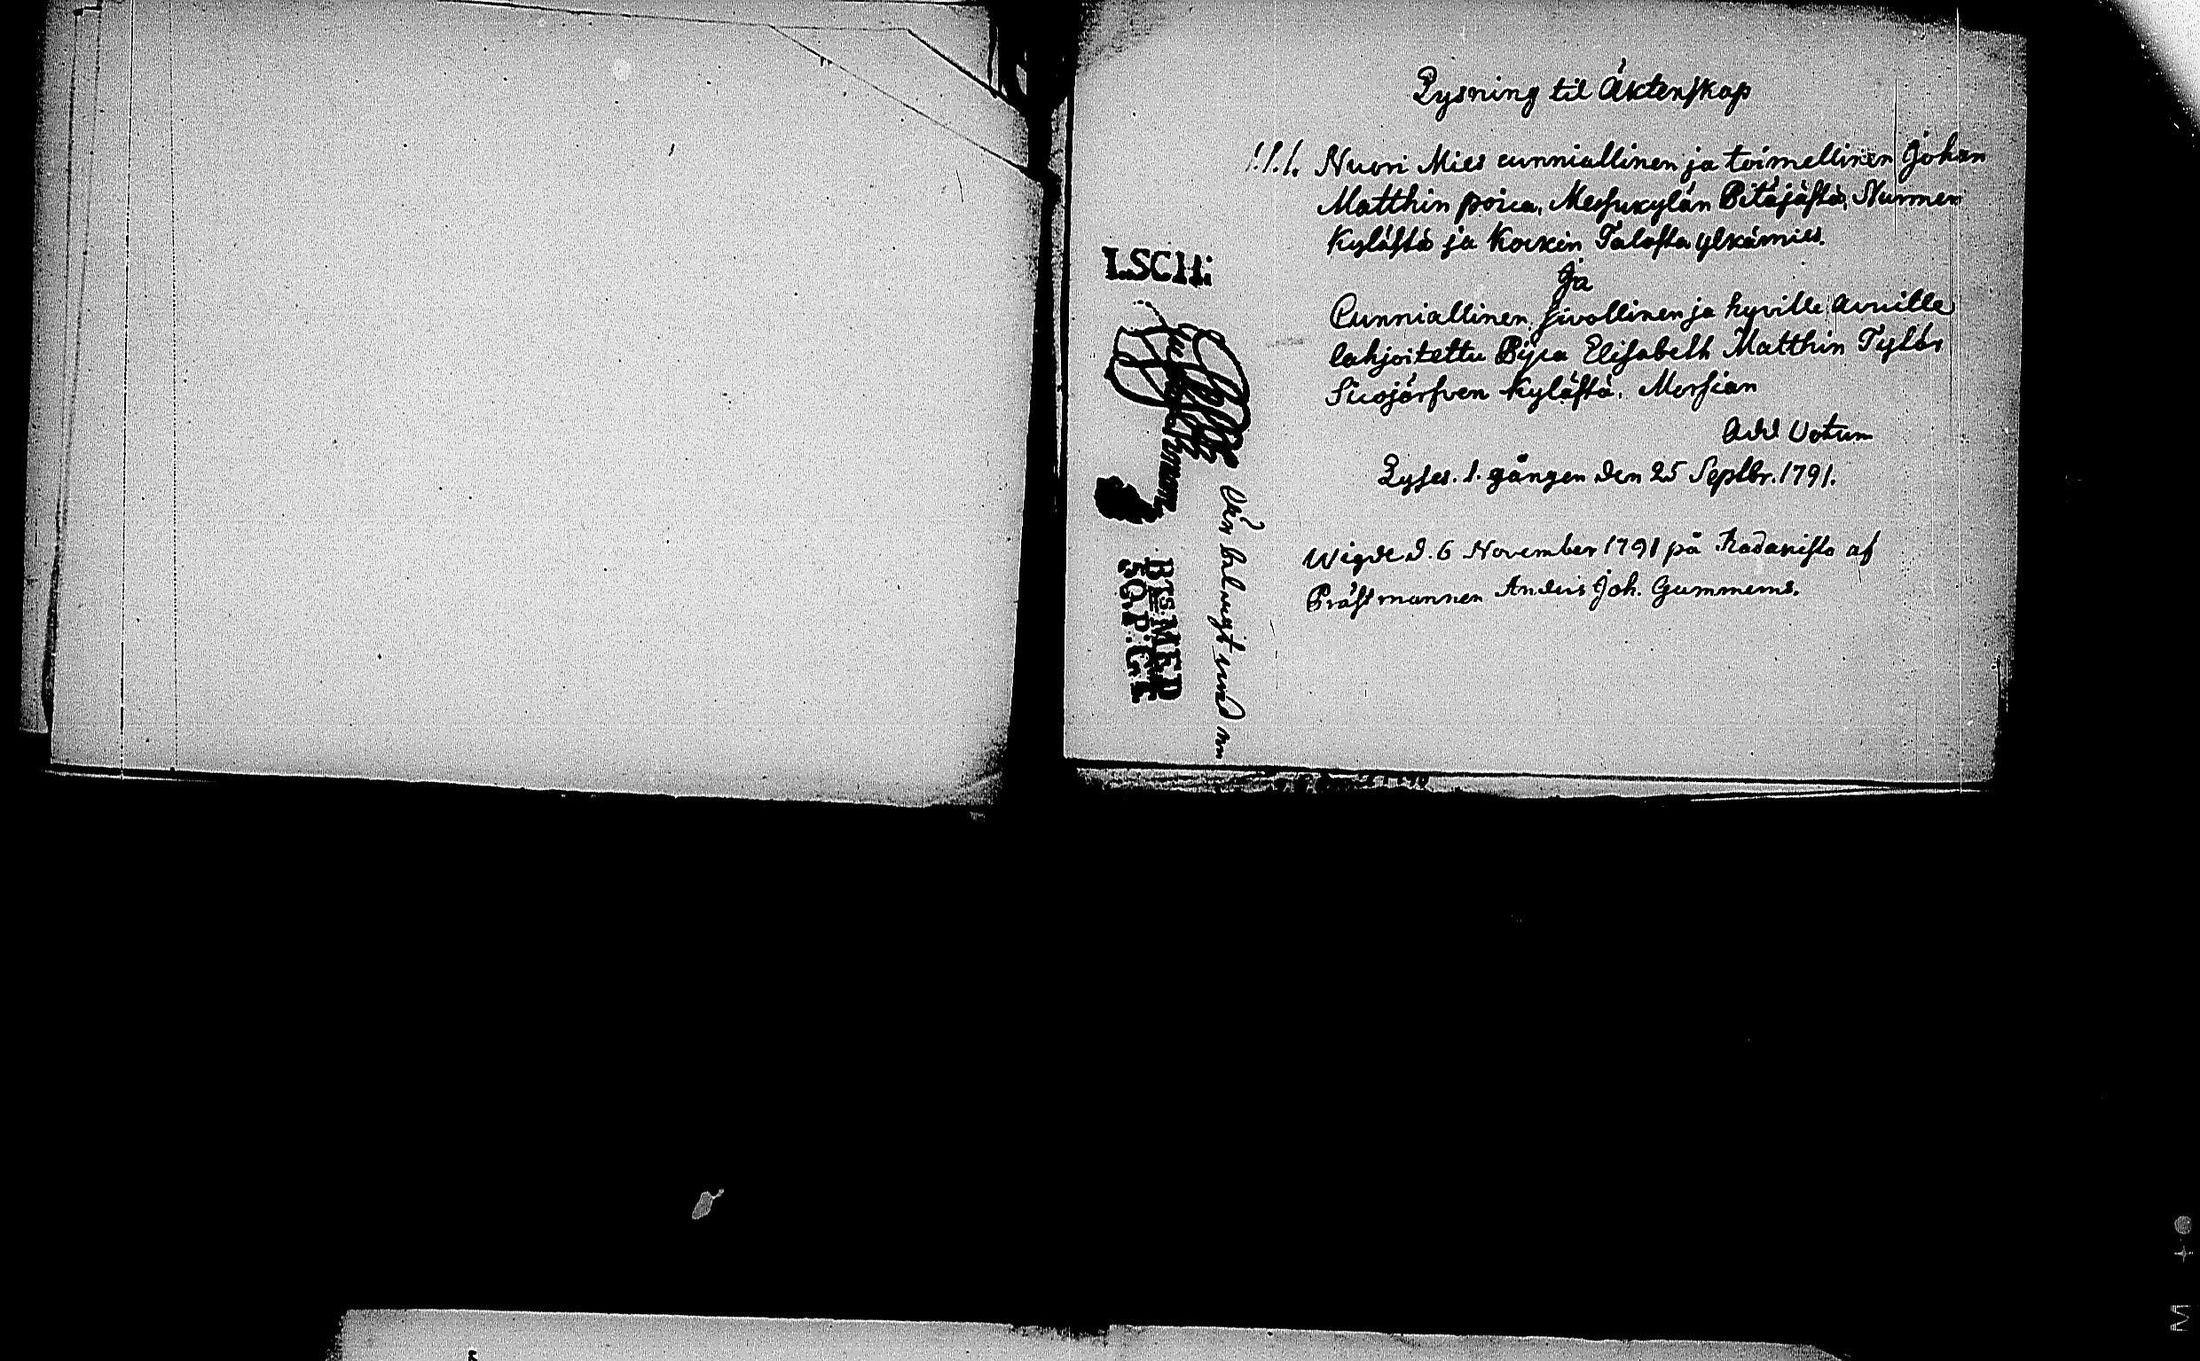 Lysning til Äktenskap
1.1.1. Nuori Mies cunniallinen ja toimellinen Johan
Matthin poica, Messukylän Pitäjästä, Nurmen
Kylästä ja Kockin Talosta ylkämies.
Ja
Cunniallinen sivollinen ja hyville avuille
lahjoitettu Pijca Elisabeth Matthin Tytär
Siwojärfven Kylästä. Morsian
Add Votum
Lyses. 1. gången den 25 Septbr. 1791.
Wigde d. 6 November 1791 på af
Prästmannen Anders Joh. Gummerus.
LSCH:
BTS MED
SQ.P.GL